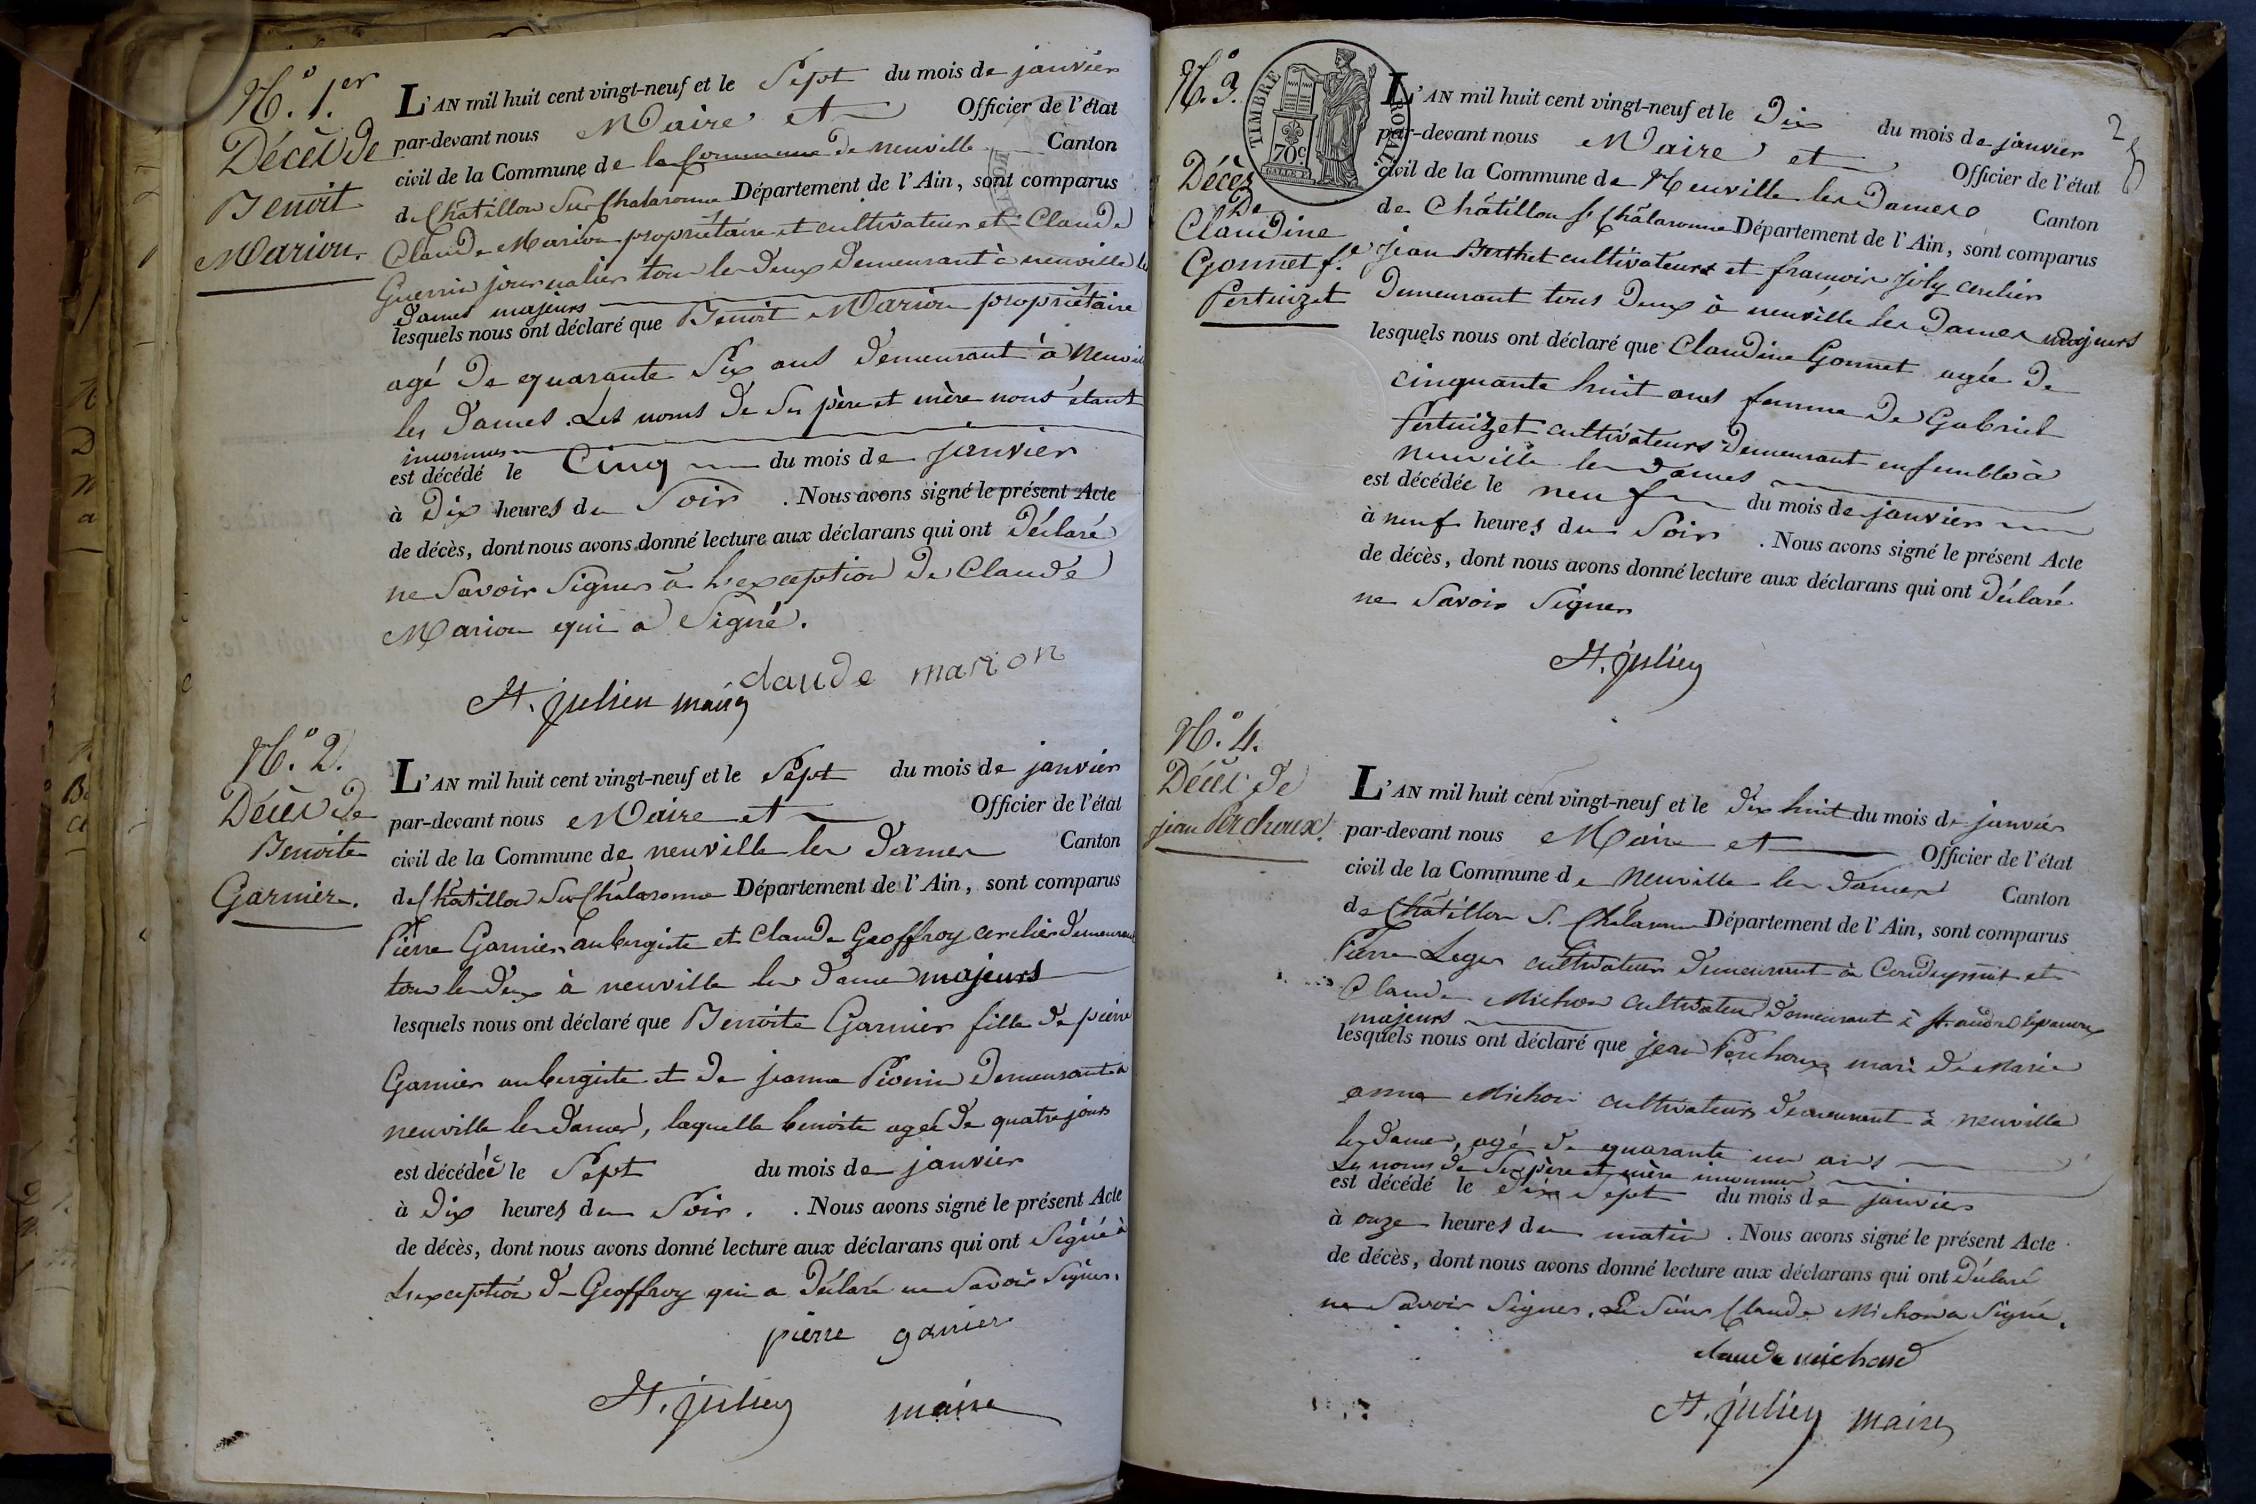 N.º 1.er
Décès de
Benoit
Marion.
L'AN mil huit cent vingt-neuf et le Sept du mois de janvier
par-devant nous Maire et Officier de l'état
civil de la Commune de la Commune de neuville Canton
de Châtillon Sur Chalaronne Département de l'Ain, sont comparus
Claude Marion propriétaire et cultivateur et Claude
Guerrin journalier tous les deux demeurant à neuville les
dames majeurs
lesquels nous ont déclaré que Benoit Marion propriétaire
agé de quarante Six ans demeurant à Neuville
les dames. Les noms de Ses père et mère nous étant
inconnus
est décédé le Cinq du mois de janvier
à Dix heures du Soir . Nous avons signé le présent Acte
de décès, dont nous avons donné lecture aux déclarans qui ont Déclaré
ne Savoir Signer à l'exception de Claude
Marion qui a Signé.
claude marion
St. julien maire
N.º 2.
Décès de
Benoite
Garnier.
L'AN mil huit cent vingt-neuf et le Sept du mois de janvier
par-devant nous Maire et Officier de l'état
civil de la Commune de neuville les dames Canton
de Châtillon Sur Chalaronne Département de l'Ain, sont comparus
Pierre Garnier aubergiste et Claude Geoffroy cerclier demeurant
tous les deux à neuville les dames majeurs
lesquels nous ont déclaré que Benoite Garnier fille de pierre
Garnier aubergiste et de jeanne Pionin demeurant à
neuville les dames, laquelle benoite agée de quatre jours
est décédée le Sept du mois de janvier
à Dix heures du Soir. . Nous avons signé le présent Acte
de décès, dont nous avons donné lecture aux déclarans qui ont Signé à
L'exception de Geoffroy qui a Déclaré ne Savoir Signer.
pierre garnier
St. julien maire
N.º 3.
Décès
De
Claudine
Gonnet f.e
Pertuizet
TIMBRE ROYAL
70c
2
L'AN mil huit cent vingt-neuf et le Dix du mois de janvier
par-devant nous Maire et Officier de l'état
civil de la Commune de Neuville les Dames Canton
de Châtillon S. Châlaronne Département de l'Ain, sont comparus
jean Berthet cultivateur et françois joly cerclier
Demeurant tous deux à neuville les Dames majeurs
lesquels nous ont déclaré que Claudine Gonnet agée de
cinquante huit ans femme de Gabriel
Pertuizet cultivateurs demeurant ensemble à
neuville les dames
est décédée le neuf du mois de janvier
à neuf heures du Soir . Nous avons signé le présent Acte
de décès, dont nous avons donné lecture aux déclarans qui ont Déclaré
ne Savoir Signer
St. julien
N.º 4.
Décès de
jean Perchoux.
L'AN mil huit cent vingt-neuf et le dix huit du mois de janvier
par-devant nous Maire et Officier de l'état
civil de la Commune de Neuville les Dames Canton
de Châtillon S. Chalaronne Département de l'Ain, sont comparus
Pierre Leger cultivateur demeurant à Condeyssiat et
Claude Michon cultivateur demeurant à St. andré le panoux
majeurs
lesquels nous ont déclaré que jean Perchoux mari de Marie
anne Michon cultivateurs demeurant à neuville
les dames, agé de quarante un ans
Les noms de Ses père et mère inconnus
est décédé le dix Sept du mois de janvier
à onze heures du matin . Nous avons signé le présent Acte
de décès, dont nous avons donné lecture aux déclarans qui ont Déclaré
ne Savoir Signer. Le Sieur Claude Michon a Signé.
claude michond
St. julien maire